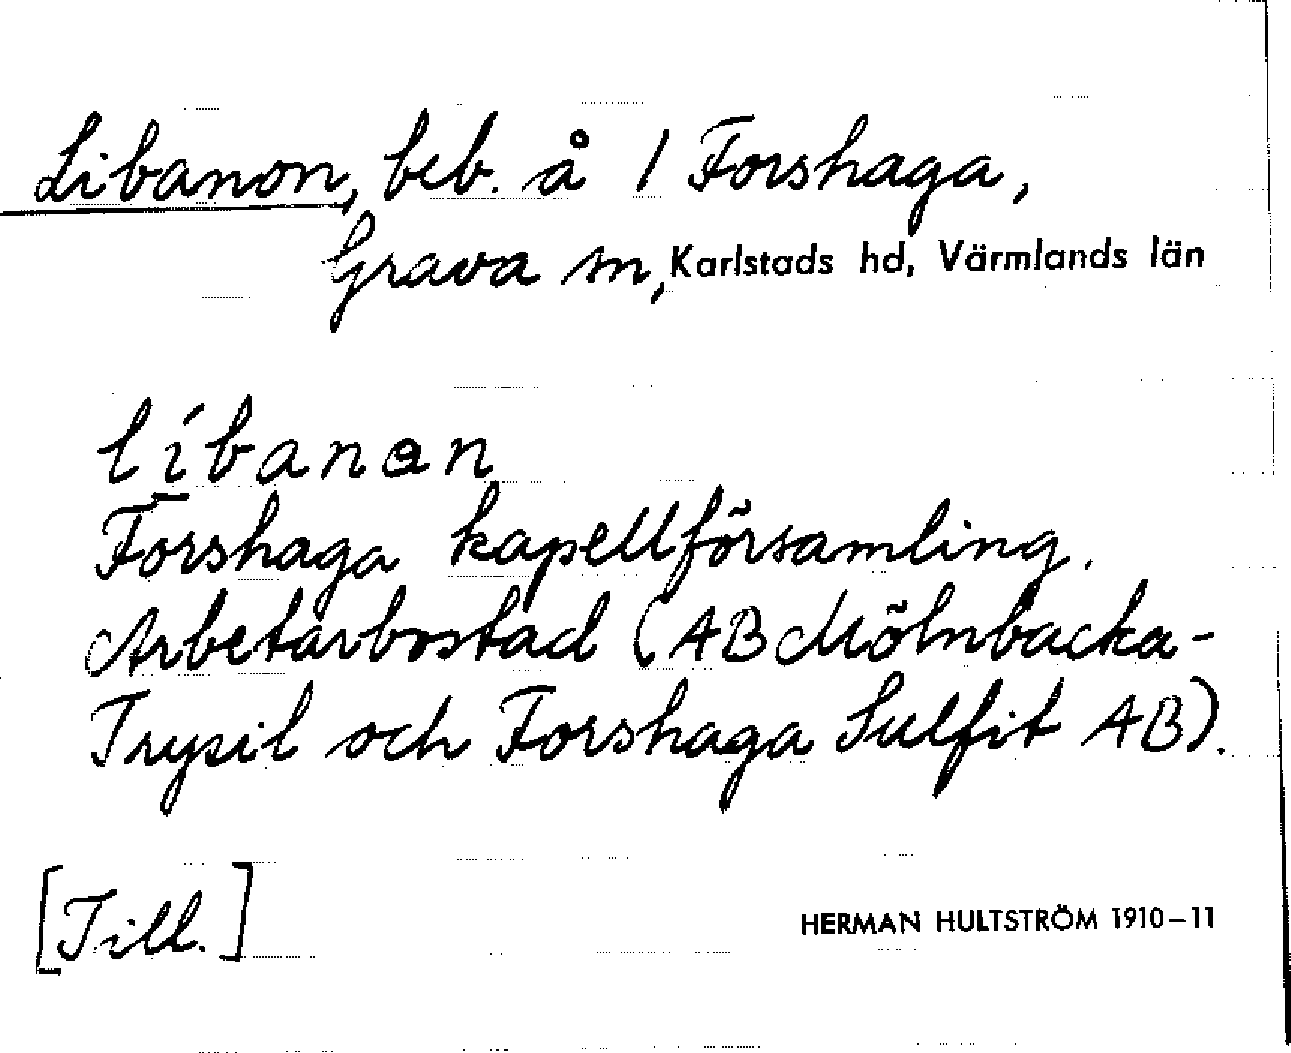 Libanon, beb. å 1 Forshaga,
Grava sn, Karlstads hd, Värmlands län
líbanɘn
Forshaga kapellförsamling.
Arbetarbostad (AB Mölnbacka-
Trysil och Forshaga Sulfit AB).
[Till.]
HERMAN HULTSTRÖM 1910–11